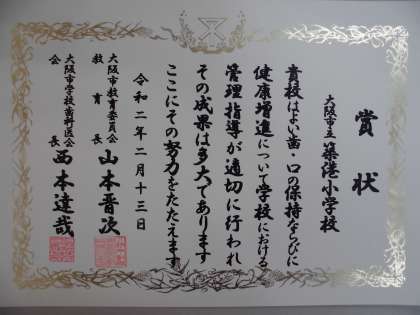 賞状
大阪市立 築港小学校
貴校はよい歯・口の保持ならびに
健康増進について学校における
管理指導が適切に行われ
その成果は多大であります
ここにその努力をたたえます
令和二年二月十三日
大阪市教育委員会
教育長 山本晋次
大阪市学校歯科医会
会長 西本達哉